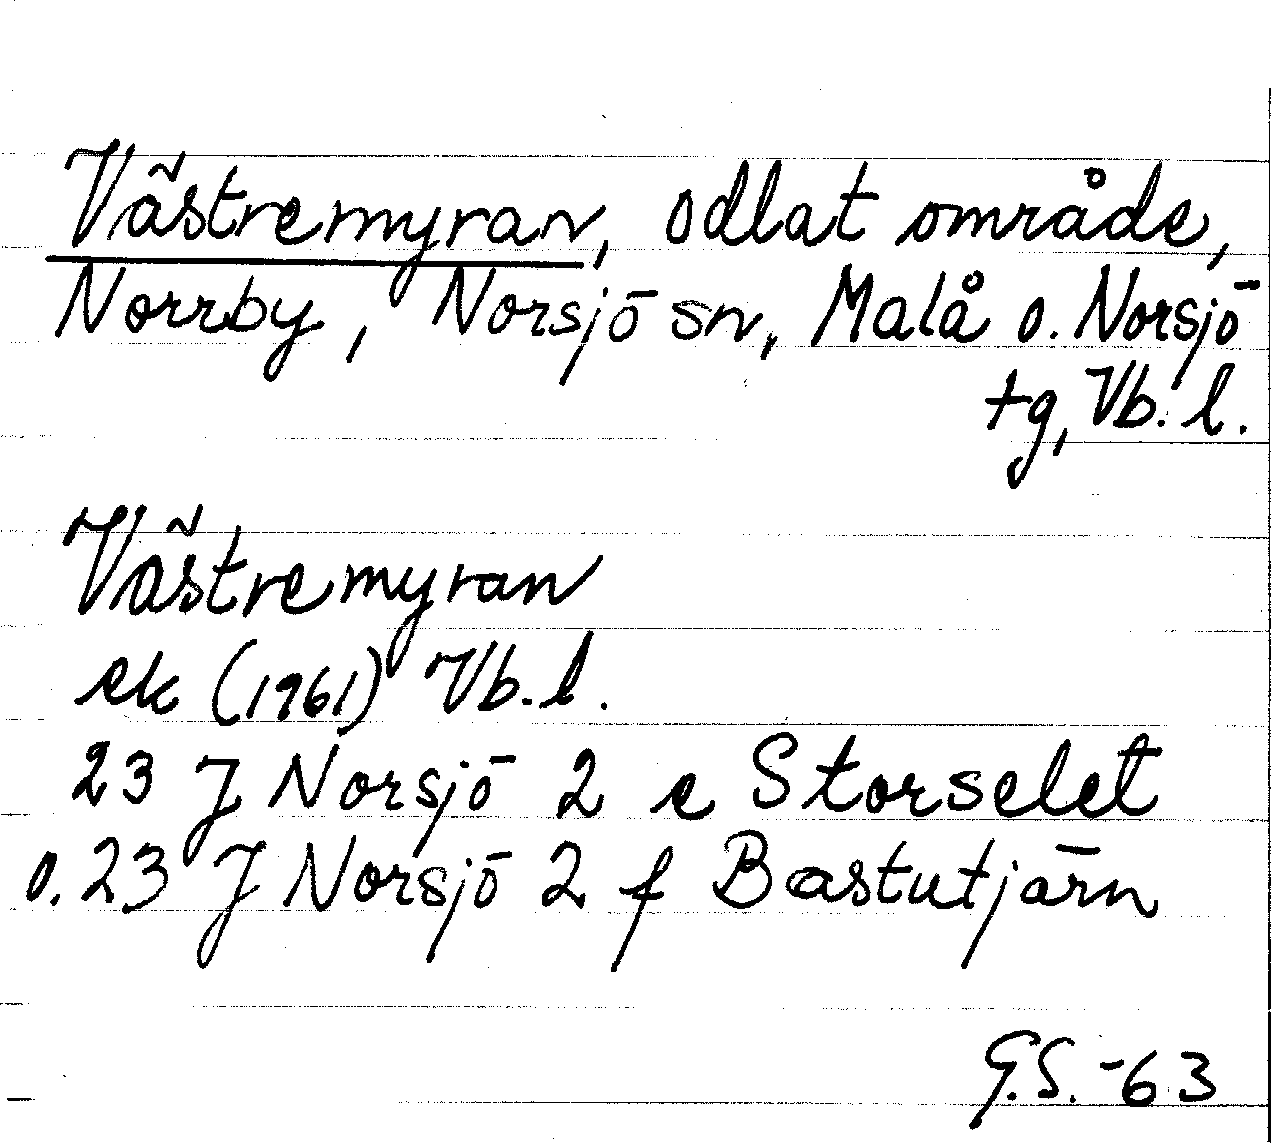 Västremyran, odlat område,
Norrby, Norsjö sn, Malå o. Norsjö
tg, Vb. l.
Västremyran
ek (1961) Vb. l.
23 J Norsjö 2 e Storselet
o. 23 J Norsjö 2 f Bastutjärn
G.S. -63